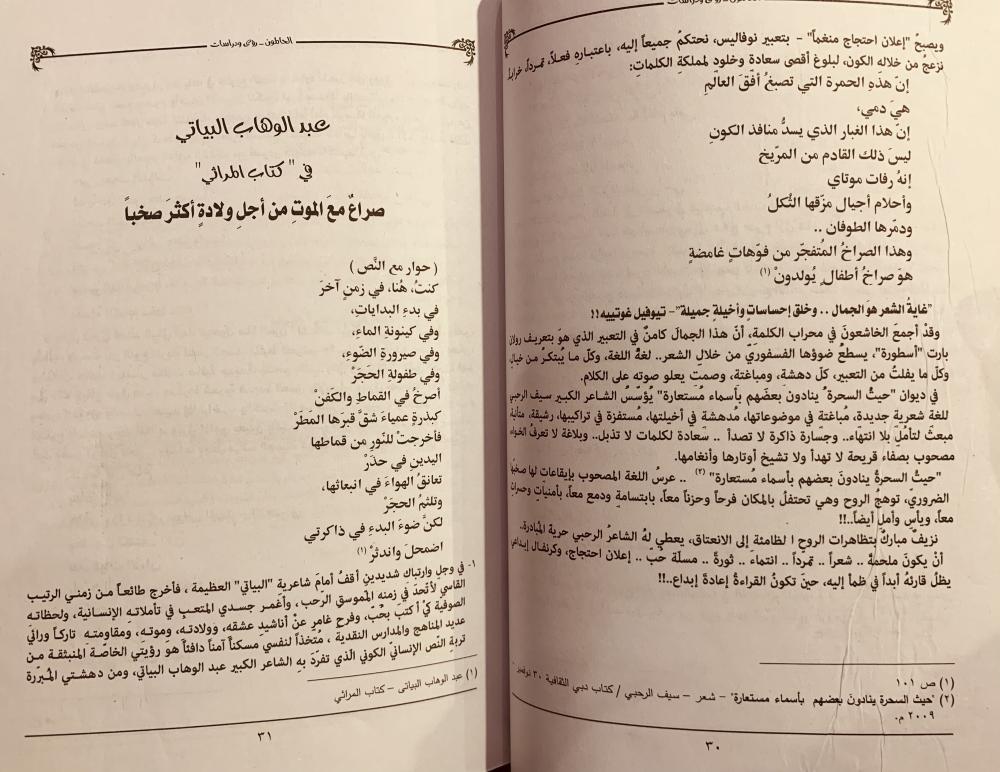 ويصبحُ "إعلان احتجاج منغماً" – بتعبير نوفاليس، نحتكمُ جميعاً إليه، باعتبارهِ فعلاً، تمرداً،
نزعجُ من خلاله الكون، لبلوغ أقصى سعادةٍ وخلودٍ لمملكةِ الكلماتِ:
إنّ هذهِ الحمرة التي تصبغُ أفقَ العالمِ
هيَ دمي،
إنّ هذا الغبار الذي يسدُّ منافذ الكونِ
ليسَ ذلك القادم من المرّيخ
إنهُ رفات موتاي
وأحلام أجيال مزّقها الثُكلُ
ودمّرها الطوفان ..
وهذا الصراخُ المُتفجّر من فوّهاتٍ غامضةٍ
هوَ صراخُ أطفالٍ يُولدونْ (١)
"غايةُ الشعر هوَ الجمال .. وخلق إحساساتٍ وأخيلةٍ جميلة"- تيوفيل غوتييه!!
وقدْ أجمعَ الخاشعونَ في محراب الكلمةِ، أنّ هذا الجمالَ كامنٌ في التعبير الذي هوَ بتعريف رولان
بارت "أسطورة"، يسطعُ ضوؤها الفسفوريّ من خلال الشعر.. لغةُ اللغة، وكلّ ما يُبتكرُ من خيالٍ
وكلّ ما يفلتُ من التعبير، كلّ دهشة، ومباغتة، وصمتٍ يعلو صوته على الكلام.
في ديوان "حيثُ السحرةُ ينادونَ بعضهم بأسماء مُستعارة" يُؤسّسُ الشاعر الكبير سيف الرحبي
للغة شعرية جديدة، مُباغتة في موضوعاتها، مُدهشةٍ في أخيلتها، مُستفزة في تراكيبها، رشيقة، متأنية
مبعثَ لتأمّلٍ بلا انتهاء.. وجسارة ذاكرة لا تصدأ .. سعادة لكلمات لا تذبل.. وبلاغة لا تعرفُ الخواء
مصحوب بصفاء قريحة لا تهدأ ولا تشيخ أوتارها وأنغامها.
"حيثُ السحرةُ ينادونَ بعضهم بأسماء مُستعارة" (٢) .. عرسُ اللغة المصحوب بإيقاعاتٍ لها صخبها
الضروري، توهجُ الروح وهي تحتفلُ بالمكان فرحاً وحزناً معاً، بابتسامةٍ ودمع معاً، بأمنياتٍ وحسراتٍ
معاً، ويأسٍ وأملٍ أيضاً..!!
نزيفٌ مباركٌ بتظاهرات الروح الظامئة إلى الانعتاق، يعطي لهُ الشاعرُ الرحبي حرية المُبادرة..
أنْ يكونَ ملحمةً .. شعراً .. تمرداً .. انتماء.. ثورةً .. مسلّة حُبّ .. إعلان احتجاج، وكرنفال إبداعي
يظلُ قارئه أبداً في ظمأ إليه، حينَ تكونُ القراءةُ إعادةَ إبداع..!!
(١) ص ١٠١
(٢) "حيث السحرة ينادونَ بعضهم بأسماء مستعارة" – شعر – سيف الرحبي / كتاب دبي الثقافية ٣٠ نوفمبر -
٢٠٠٩ م.
٣٠
الخالطون – رؤى ودراسات
عبد الوهاب البياتي
في " كتاب المراثي"
صراعٌ معَ الموتِ من أجلِ ولادةٍ أكثرَ صخباً
( حوار مع النَّص )
كنتُ، هُنا، في زمنٍ آخرَ
في بدءِ البداياتِ،
وفي كينونةِ الماءِ،
وفي صيرورةِ الضّوءِ،
وفي طفولةِ الحَجَرْ
أصرَخُ في القماطِ والكَفَنْ
كبذرةٍ عمياءَ شقَّ قبرَها المَطَرْ
فأخرجتْ للنّورِ من قماطها
اليدينِ في حذَرْ
تعانقُ الهواءَ في انبعاثها،
وتلثمُ الحجَرْ
لكنّ ضوءَ البدءِ في ذاكرتي
اضمحلَ واندثرْ (١)
١- في وجلٍ وارتباك شديدينِ أقفُ أمامَ شاعريةِ "البياتي" العظيمة ، فأخرج طائعاً من زمني الرتيب
القاسي لأتحدَ في زمنهِ المموسق الرّحب ، وأغمر جسدي المتعب في تأملاته الإنسانية، ولحظاته
الصوفيةِ كيْ أكتبَ بحُبّ، وفرح غامرٍ عنْ أناشيدِ عشقهِ، وولادتهِ، وموتهِ، ومقاومتهِ تاركاً ورائي
عديد المناهج والمدارس النقدية ، مُتخذاً لنفسي مسكناً آمناً دافئاً هو رؤيتي الخاصّة المنبثقة من
تربةِ النّص الإنساني الكوني الّذي تفرّدَ بهِ الشاعر الكبير عبد الوهاب البياتي، ومن دهشتي المُبررة
(١) عبد الوهاب البياتي – كتاب المراثي
٣١